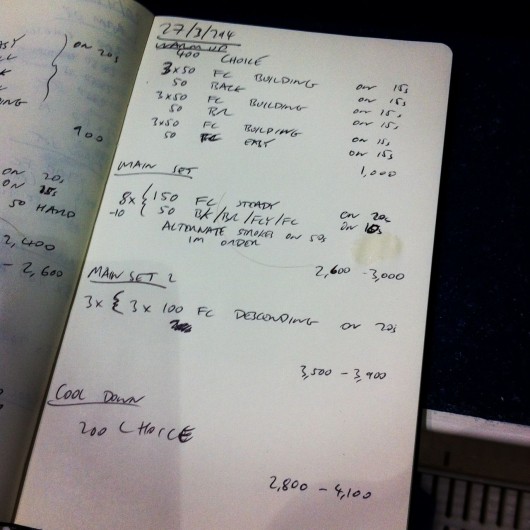 ON 20s
NG
900
ON 20s
ON 15s
50 HARD
2,400
- 2,600
27/3/214
WARM UP
400 CHOICE
3x50 FC BUILDING ON 15s
50 BACK ON 15s
3x50 FC BUILDING ON 15s
50 B/L ON 15s
3x50 FC BUILDING ON 15s
50 FC EASY ON 15s
1,000
MAIN SET
8x { 150 FC STEADY ON 20s
-10 { 50 BK/B/L/FLY/FC ON 10s
ALTERNATE STROKES ON 50s
IM ORDER
2,600 - 3,000
MAIN SET 2
3x { 3 x 100 FC DESCENDING ON 20s
3,500 - 3,900
COOL DOWN
200 CHOICE
2,800 - 4,100